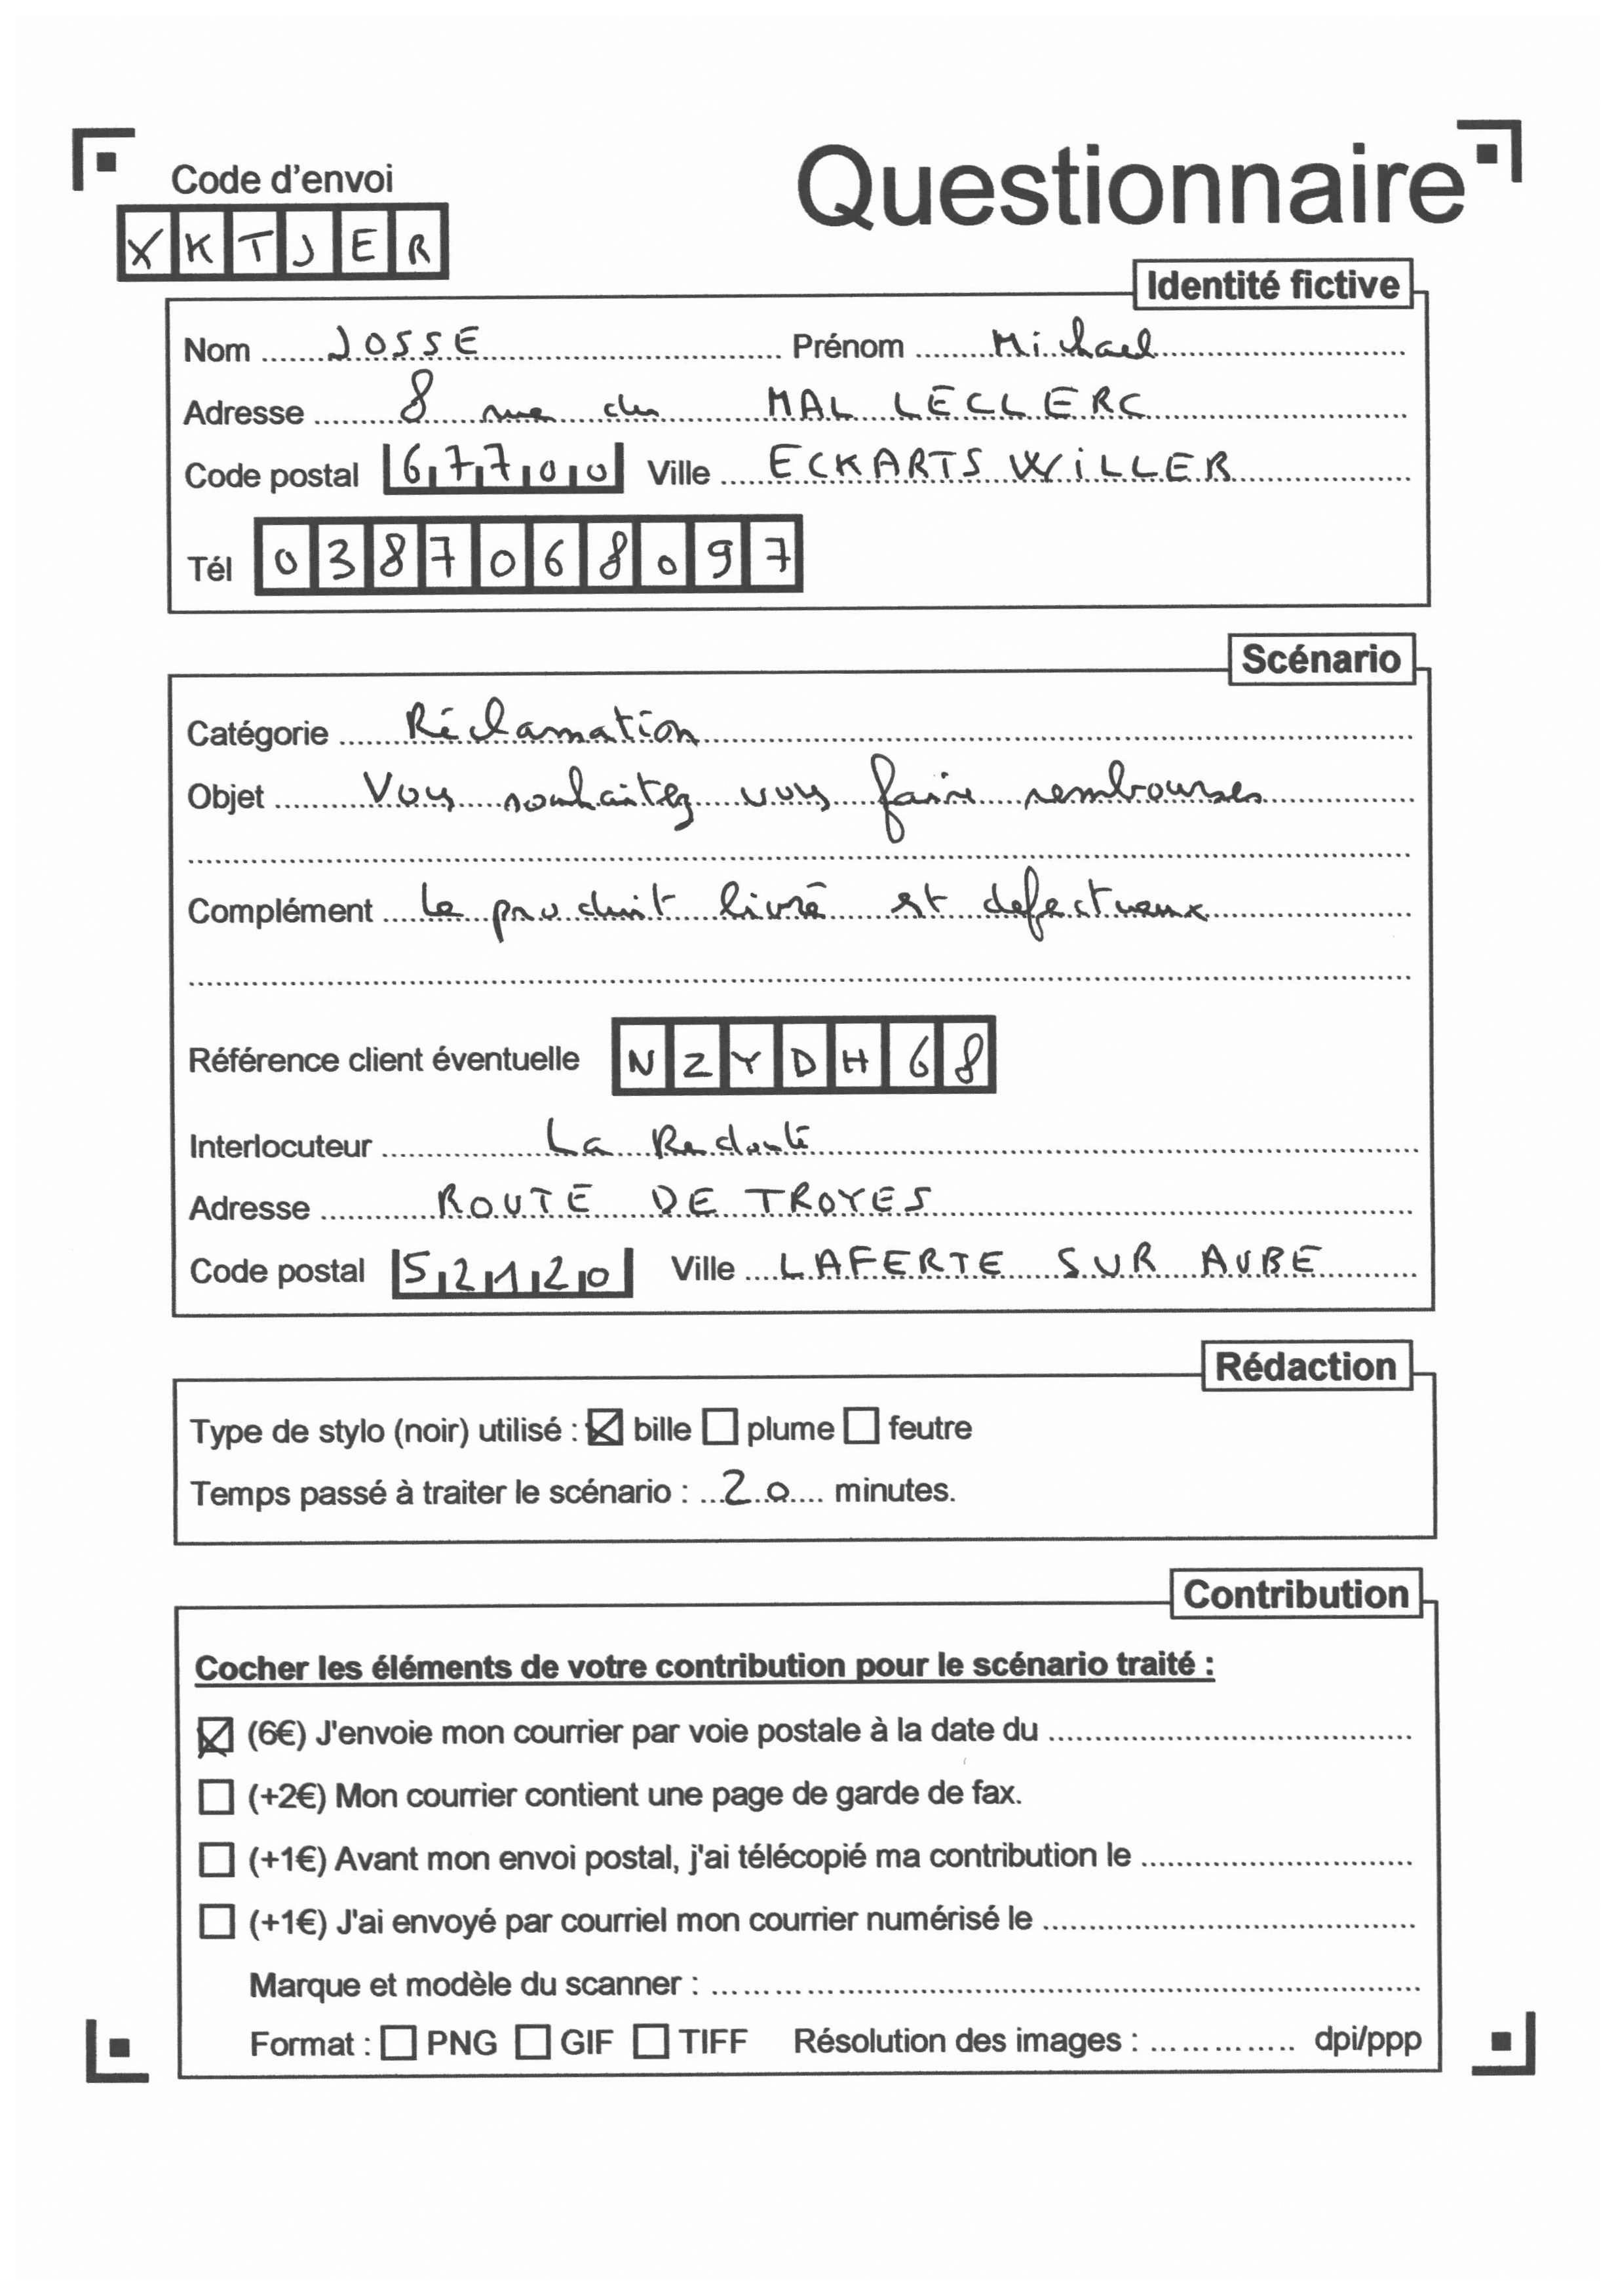 Code d'envoi
Questionnaire
XKTJER
Identité fictive
Nom JOSSE Prénom Michael
Adresse 8 rue du MAL LECLERC
Code postal 67700 Ville ECKARTSWILLER
Tél 0387068097
Scénario
Catégorie Réclamation
Objet Vous souhaitez vous faire rembourser
Complément Le produit livré est defectueux
Référence client éventuelle NZYDH68
Interlocuteur La Redoute
Adresse ROUTE DE TROYES
Code postal 52120 Ville LAFERTE SUR AUBE
Rédaction
Type de stylo (noir) utilisé : ☒ bille ☐ plume ☐ feutre
Temps passé à traiter le scénario : 20 minutes.
Contribution
Cocher les éléments de votre contribution pour le scénario traité :
☒ (6€) J'envoie mon courrier par voie postale à la date du
☐ (+2€) Mon courrier contient une page de garde de fax.
☐ (+1€) Avant mon envoi postal, j'ai télécopié ma contribution le
☐ (+1€) J'ai envoyé par courriel mon courrier numérisé le
Marque et modèle du scanner :
Format : ☐ PNG ☐ GIF ☐ TIFF Résolution des images : dpi/ppp